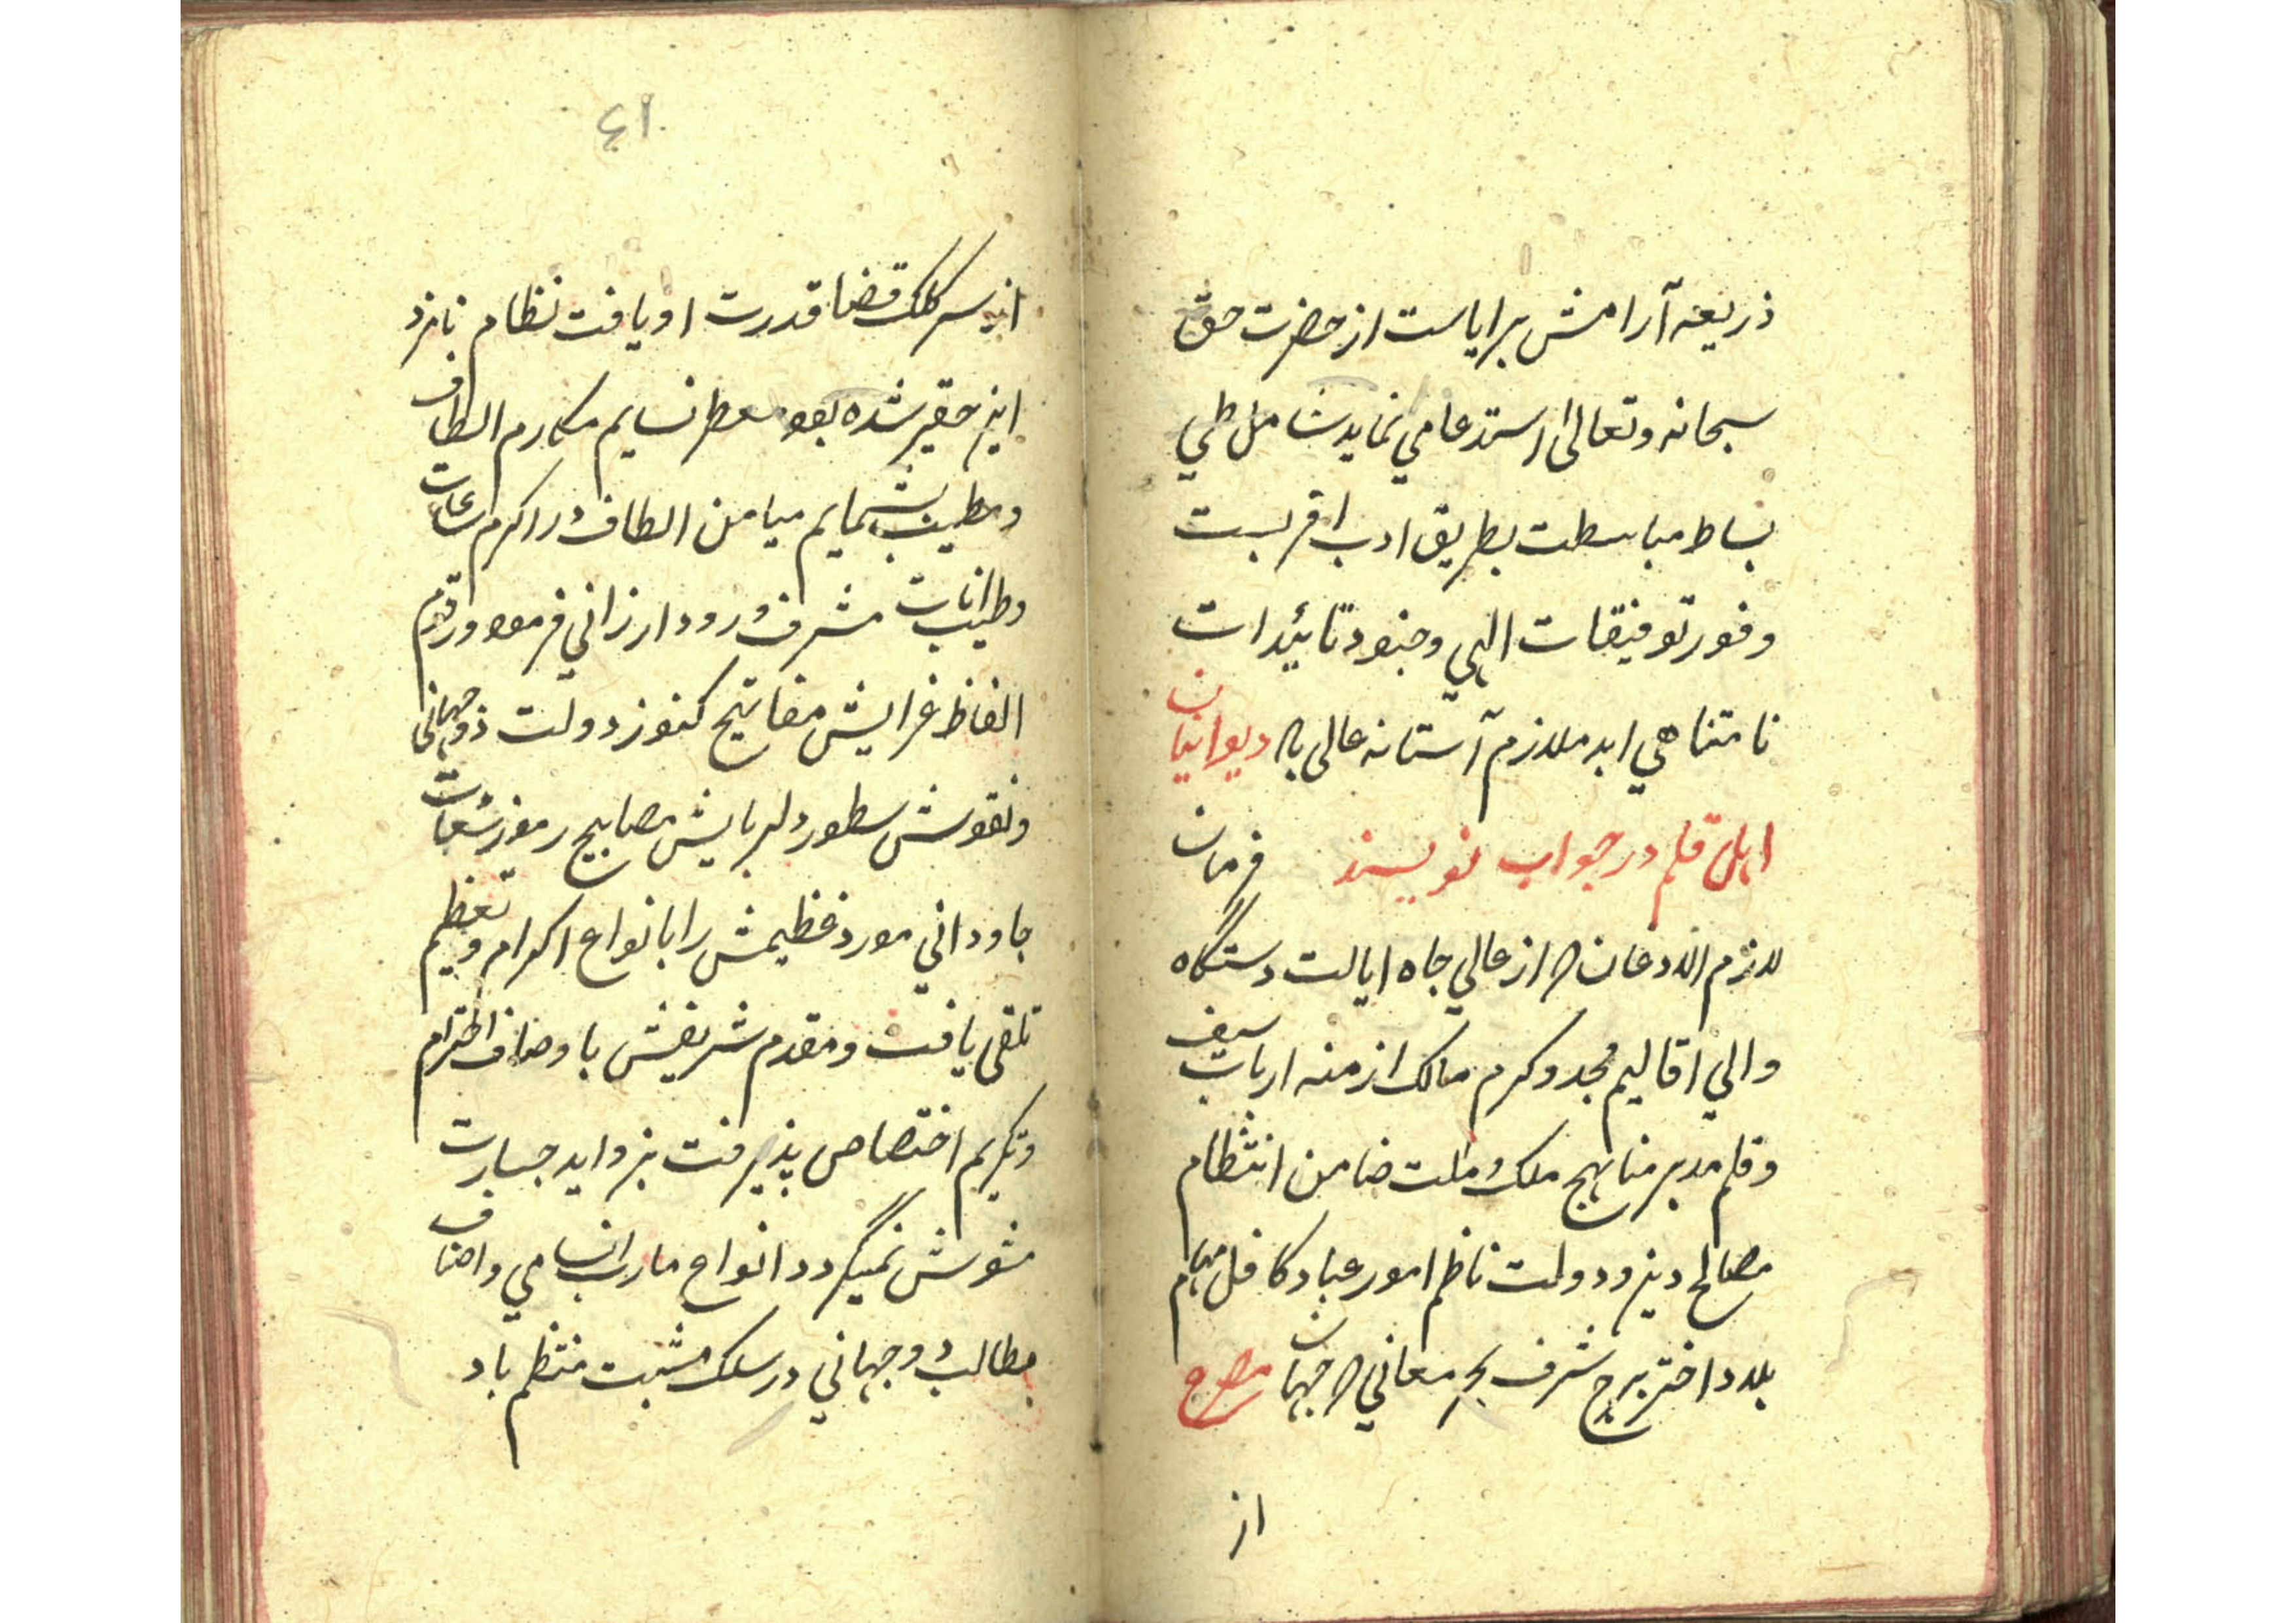 ذریعه آرامش برایاست از حضرت حق
سبحانه وتعالی استدعا می نماید شامل طی
بساط مباسطت بطریق ادب اقربست
وفور توفیقات الهی وجنود تائیدات
نامتناهی ابد ملازم آستانه عالی باد دیوانیان
اهل قلم در جواب نویسند فرمان
لازم الاذعان که از عالی جاه ایالت دستگاه
والی اقالیم مجد وکرم مالک ازمنه ارباب سیف
وقلم مدبر مناهج ملک وملت ضامن انتظام
مصالح دین ودولت ناظم امور عباد کافل مهام
بلاد اختر برج شرف بحر معانی که جهان مصرع
از
٤١
از سر کلک قضا قدرت او یافت نظام نامزد
این حقیر شده بود معطر نسایم مکارم الطاف
ومطیب شمایم میامن الطاف در اکرم ساعات
وطیب انات مشرف ورود ارزانی فرمود ورقوم
الفاظ غرایش مفاتیح کنوز دولت دوجهانی
ونقوش سطور دلربایش مصابیح رموز سعادات
جاودانی مورد عظیمش را بانواع اکرام وتعظیم
تلقی یافت ومقدم شریفش باوصاف احترام
وتکریم اختصاص پذیرفت بزواید جسارت
مشوش نمیگردد انواع مارب انسامی واصناف
مطالب دوجهانی در سلک مثبت منتظم باد